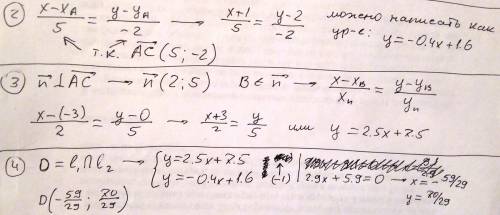 ② x-x_A/5 = y-y_A/-2 → x+1/5 = y-2/-2 можно написать как
ур-е: y=-0.4x+1.6
т.к. AC(5;-2)
③ n⊥AC → n(2;5) B∈n → x-x_B/x_n = y-y_B/y_n
x-(-3)/2 = y-0/5 → x+3/2 = y/5 или y=2.5x+7.5
④ D=l₁∩l₂ → {y=2.5x+7.5
y=-0.4x+1.6 (-1) 2.9x+5.9=0 → x=-59/29
D(-59/29; 70/29) y=70/29